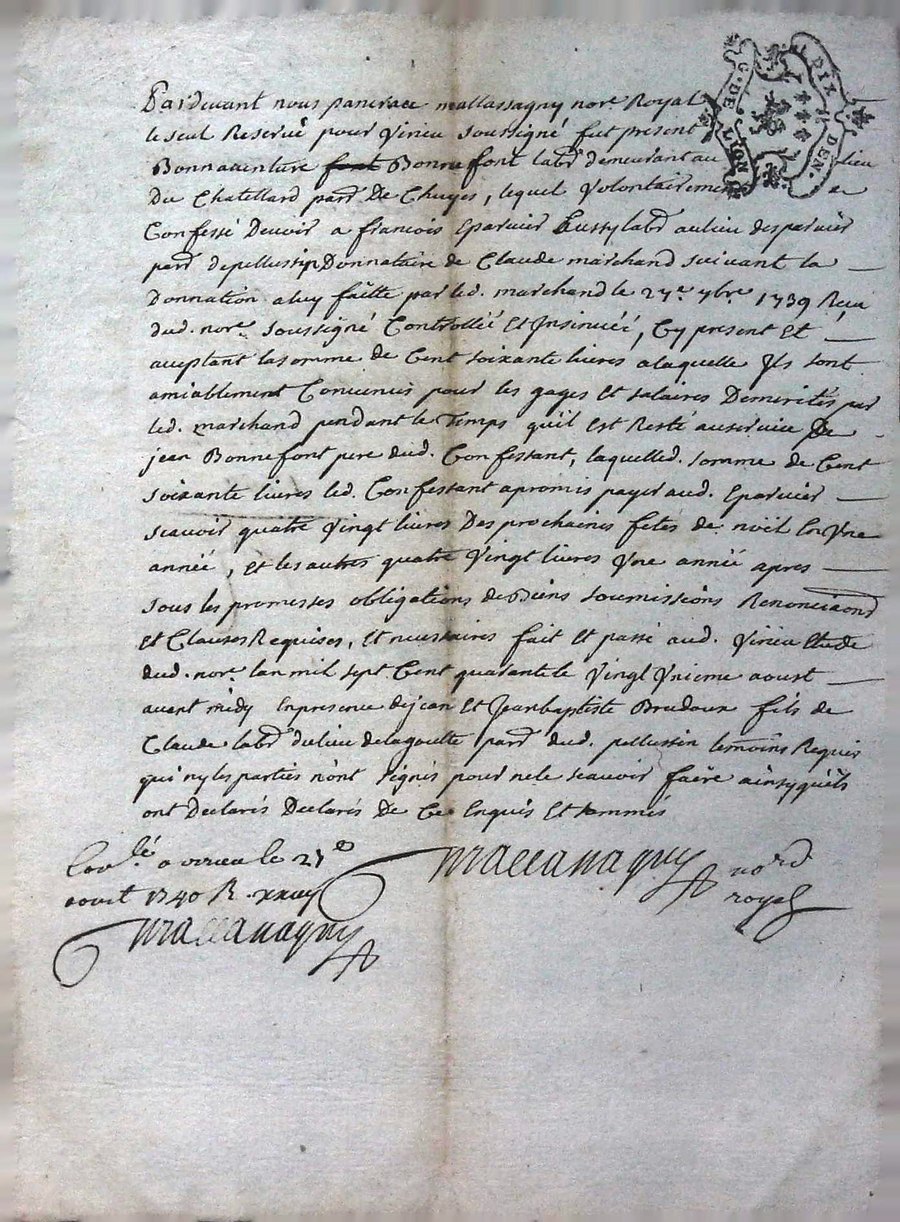 Pardevant nous pancrace mallassagny nore Royal
le seul Reservé pour Virieu soussigné fut present
Bonnaventure Bonnefont labr demeurant au lieu
Du Chatellard parse De Chuyes, lequel Volontairement a
Confessé Devoir a francois Eparvier aussy labr aulieu desparvier
parse depellussin Donnataire de Claude marchand suivant la
Donnation aluy faitte par led. marchand le 27e 7bre 1739 Reçu
dud. nore soussigné Controllée Et Jnsinuée, Cy present Et
aceptant lasomme de Cent soixante livres alaquelle Jls sont
amiablement Convenus pour les gages Et salaires Demerités par
led. marchand pendant le Temps quil Est Resté auservice De
jean Bonnefont pere dud. Confessant, laquelled. somme de Cent
soixante livres led. Confessant apromis payer aud. Eparvier
scavoir quatre Vingt livres Des prochaines fetes de noël En Vne
année, Et les autres quatre Vingt livres Vne année apres
sous les promesses obligations de Biens soumissions Renonciaons
Et Clauses Requises, Et necessaires fait Et passé aud. Virieu Etude
dud. nore. lan mil sept Cent quarante le Vingt Vnieme aoust
avant midy Enpresence dejean Et Jeanbaptiste Brudoux fils de
Claude labr dulieu delagoutte parse dud. pellussin temoins Requis
qui ny les parties n'ont signés pour ne le scavoir faire ainsyquils
ont Declarés Declarés De Ce Enquis Et sommés
Conlé a virieu le 21e
aout 1740 R.
mallassagny
mallassagny
nore
royal
G. DE LION
DIX DEN.